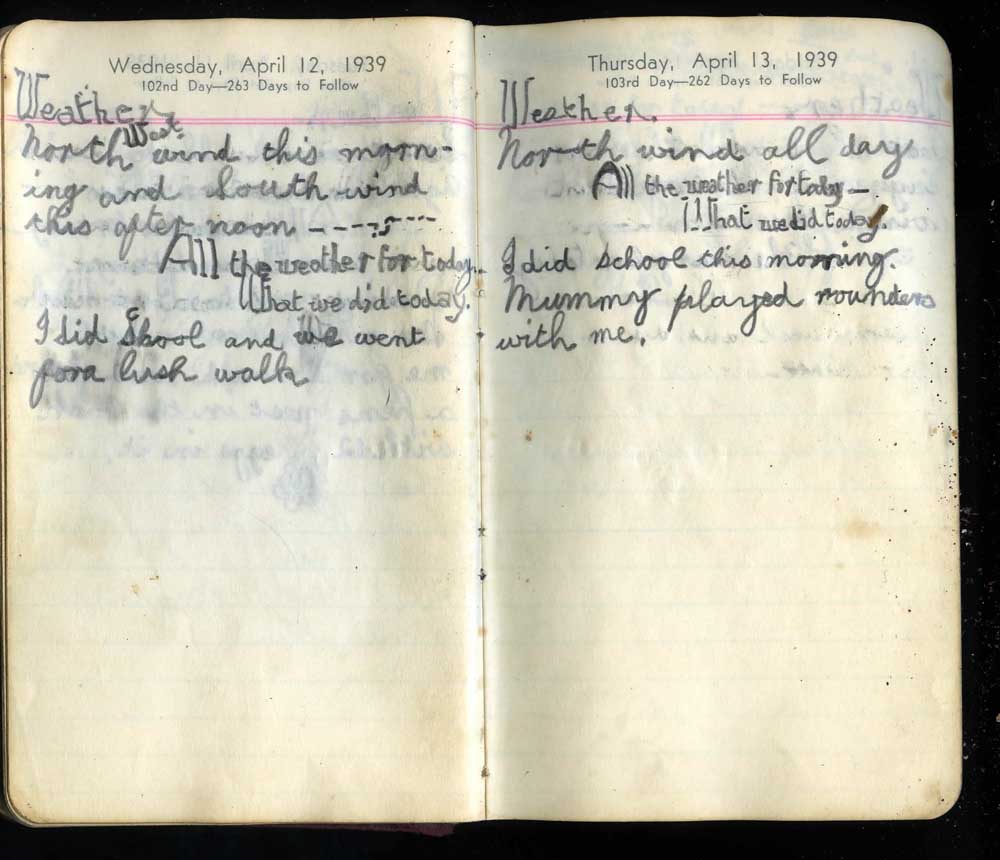 Wednesday, April 12, 1939
102nd Day—263 Days to Follow
Weather.
North West wind this morn-
ing and South wind
this after noon
All the weather for today.
What we did today.
I did Skool and we went
for a lush walk
Thursday, April 13, 1939
103rd Day—262 Days to Follow
Weather.
North wind all day
All the weather for today
What we did today.
I did school this morning.
Mummy played rounders
with me.